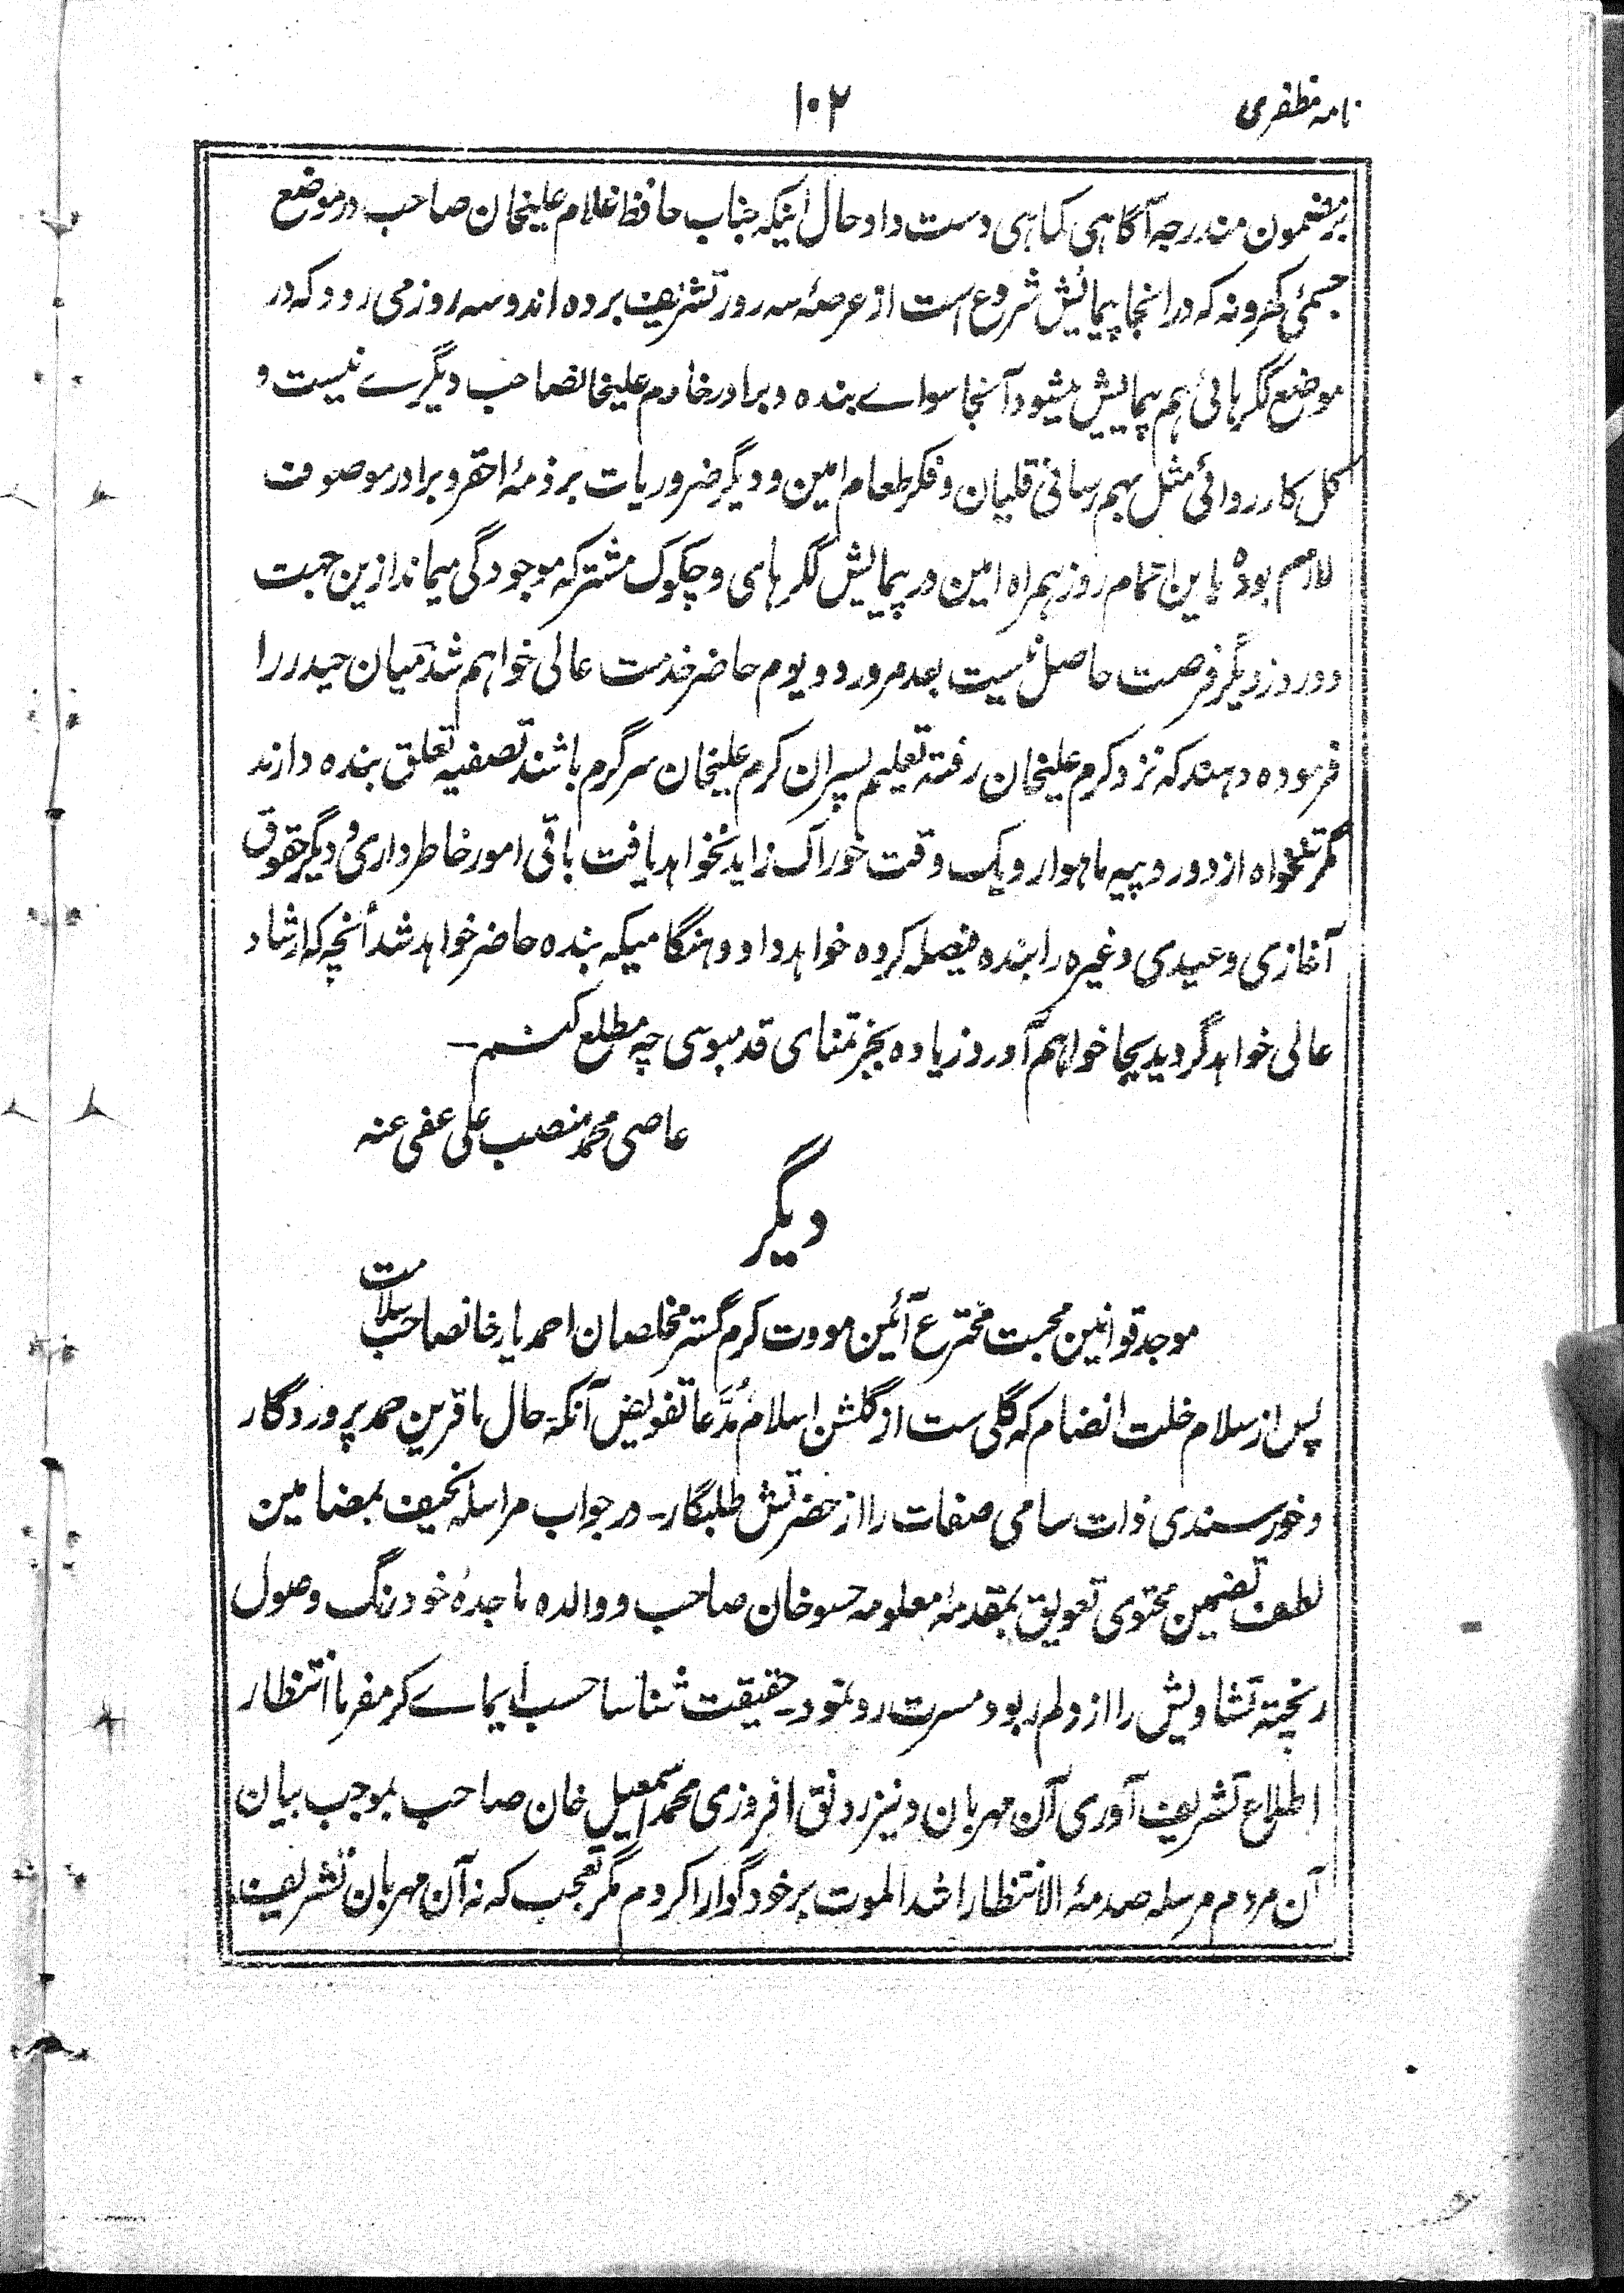 نامہ مظفری
۱۰۲
بر مضمون مندرجہ آگاہی کماہی دست داد حال اینکہ جناب حافظ غلام علیخان صاحب در موضع
کہ در انجا پیمایش شروع است از عرصۂ سہ روز تشریف بردہ اند و سہ روز می رود کہ در
موضع ککرہائی ہم پیمایش میشود آنجا سواے بندہ و برادر خادم علیخانصاحب دیگرے نیست و
کل کارروائی مثل بہم رسانی قلیان و فکر طعام امین و دیگر ضروریات بر ذمۂ احقر و برادر موصوف
لازم بودہ تمام روز ہمراہ امین در پیمایش ککرہای و چکوک مشترکہ موجودگی میماند ازین جہت
دو روز دیگر فرصت حاصل نیست بعد مرور دو یوم حاضر خدمت عالی خواہم شد میان حیدر را
فرمودہ دہند کہ نزد کرم علیخان رفتہ تعلیم پسران کرم علیخان سرگرم باشند تصفیہ تعلق بندہ دارند
مگر تنخواہ از دو روپیہ ماہوار و یک وقت خوراک زاید نخواہد یافت باقی امور خاطرداری و دیگر حقوق
آغازی و عیدی وغیرہ را بندہ فیصلہ کردہ خواہد داد و ہنگامیکہ بندہ حاضر خواہد شد آنچہ کہ ارشاد
عالی خواہد گردید بجا خواہم آورد زیادہ بجز تمنای قدمبوسی چہ مطلع کنم۔
عاصی محمد منصب علی عفی عنہ
دیگر
موجد قوانین محبت مخترع آئین مودت کرم گستر مخلصان احمد یار خانصاحب سلامت
پس از سلام خلت انضمام کہ گلی ست از گلشن اسلام مُدَّعا تفویض آنکہ حال ما قرین حمد پروردگار
و خورسندی ذات سامی صفات را از حضرتش طلبگار۔ در جواب مراسلہ نحیف بمضامین
لطف تضمین محتوی تعویق بمقدمۂ معلومہ حسو خان صاحب و والدہ ماجدۂ خود رنگ وصول
ریختہ تشاویش را از دلم ربود مسرت رو نمود۔ حقیقت شناسا حسب ایماے کرمفرما انتظار
اطلاع تشریف آوری آن مہربان و نیز رونق افروزی محمد اسمعیل خان صاحب بموجب بیان
آن مردم مرسلہ صدمۂ الانتظار اشد الموت بر خود گوارا کردم مگر تعجب کہ نہ آن مہربان تشریف